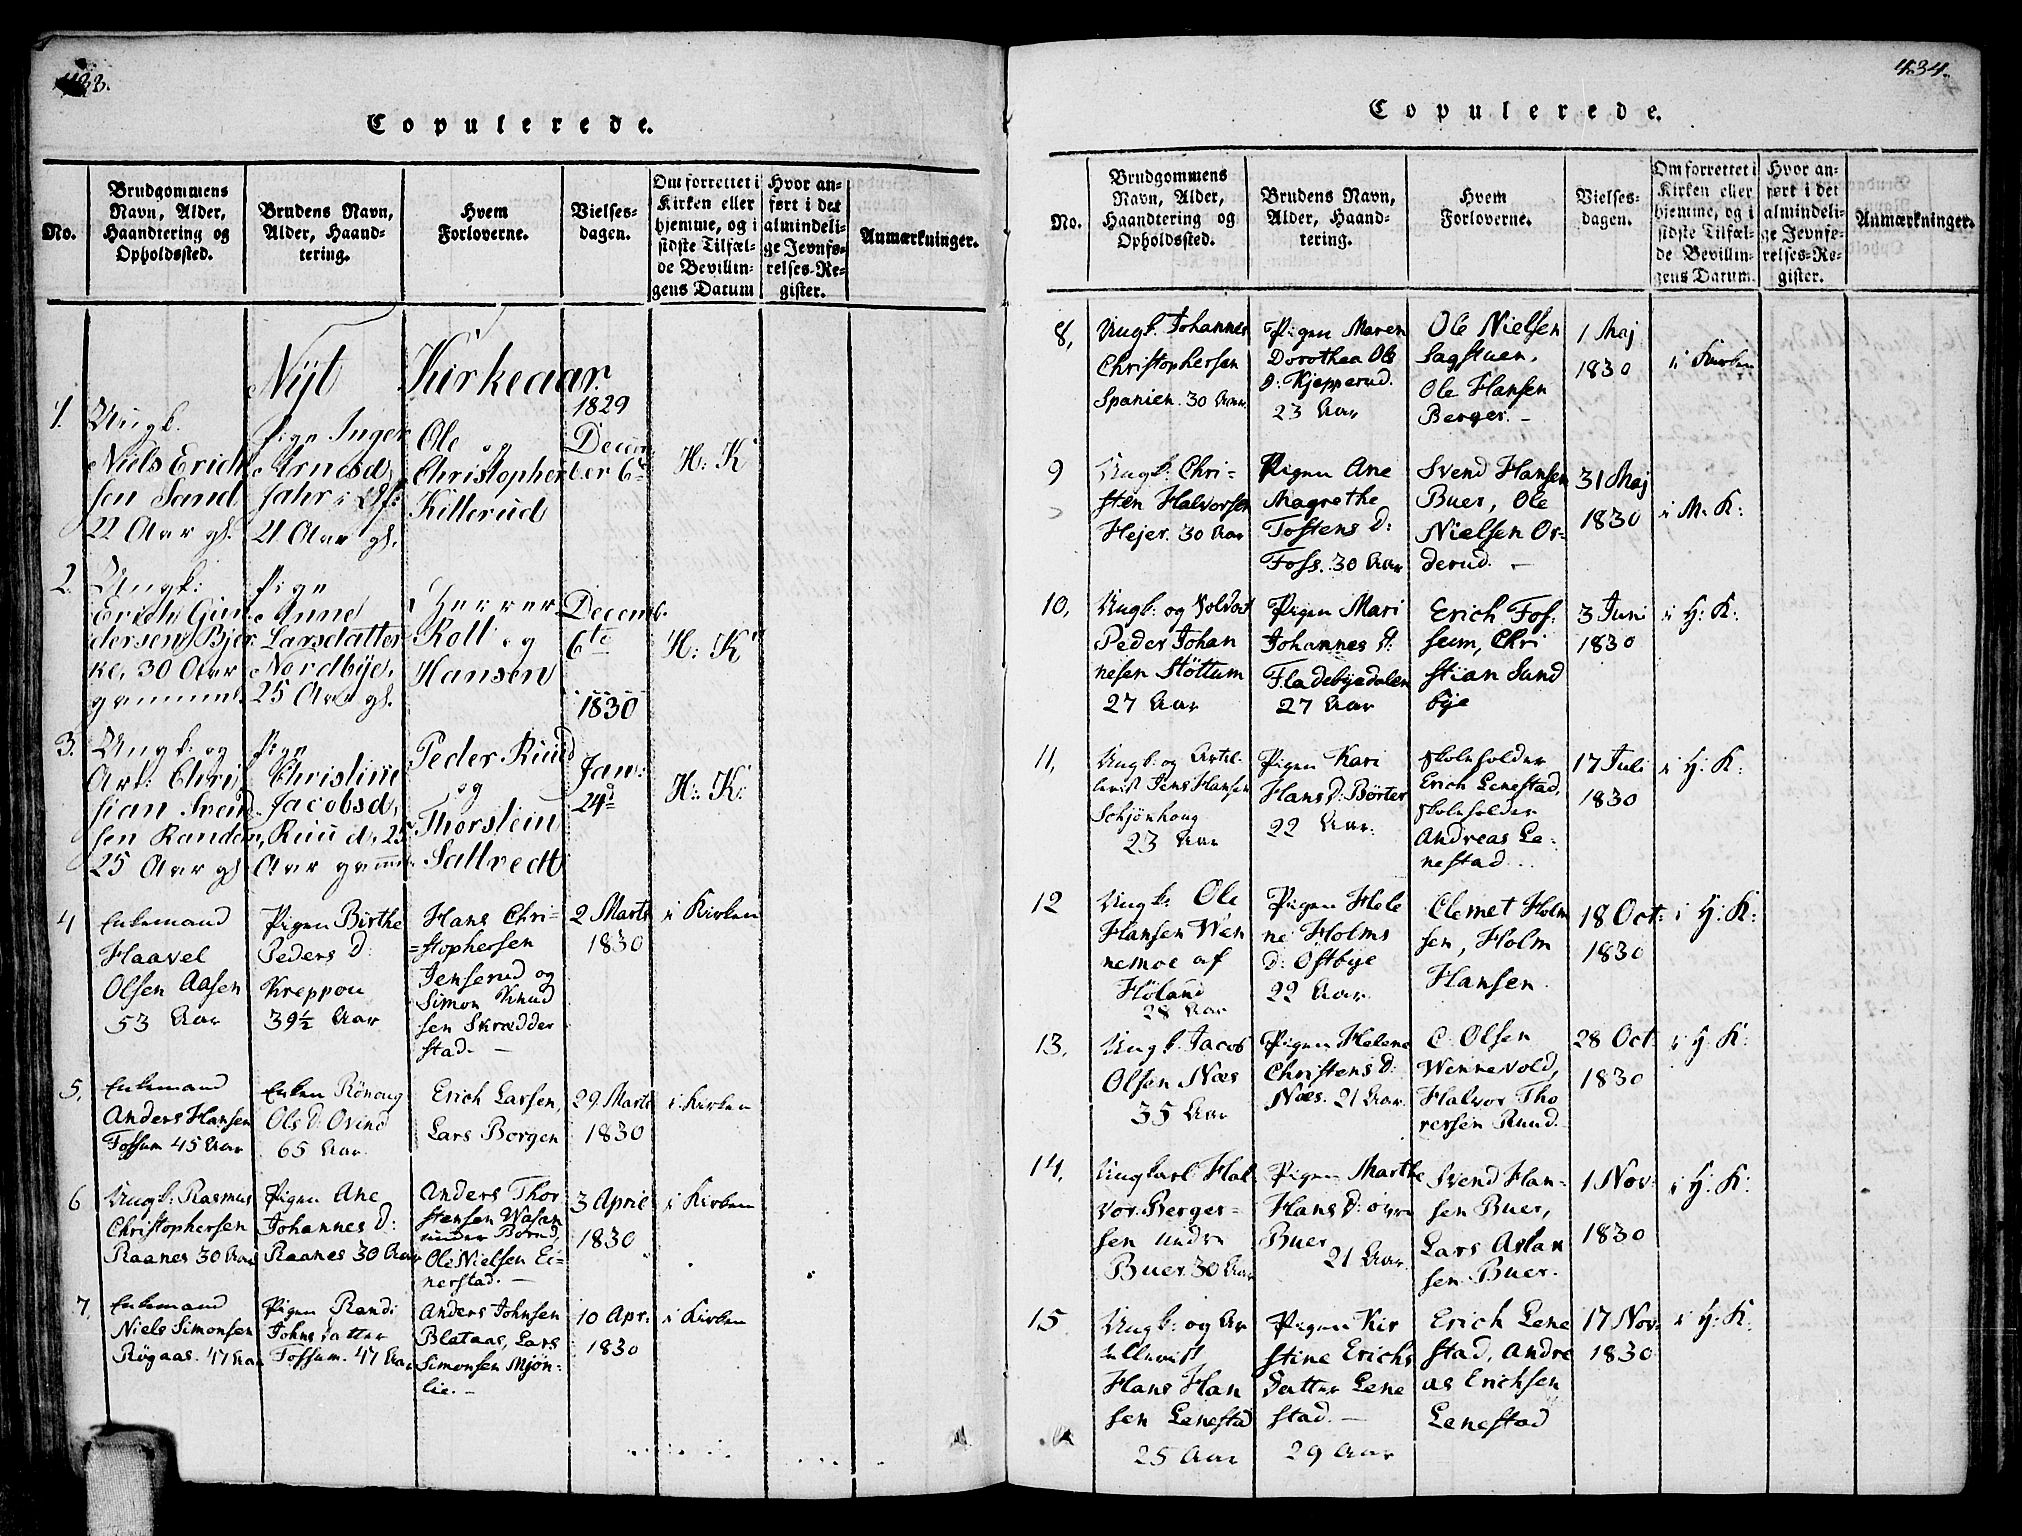 433.
Copulerede.
No.
Brudgommens
Navn, Alder,
Haandtering og
Opholdssted.
Brudens Navn,
Alder, Haand-
tering.
Hvem
Forloverne.
Vielses-
dagen.
Om forrettet i
Kirken eller
hjemme, og i
sidste Tilfæl-
de Bevillin-
gens Datum
Hvor an-
ført i det
almindeli-
ge Jevnfø-
relses-Re-
gister.
Anmærkninger.
Nyt Kirkeaar.
1829
1.
Ungk.
Niels Erich
sen Sand
22 Aar gl.
Pige Inger
Arnesd.
21 Aar gl.
Ole og
Christopher
Killerud
Decem
ber 6te
H: K
2.
Ungk:
Erich Gun
dersen Bjer
ke, 30 Aar
gammel.
Pige
Anne
Larsdatter
Nordbye,
25 Aar gl.
Herrer
Roll og
Hansen
Decemb.
6te
H: K
1830
3.
Ungk: og
Art: Chri
sian Svend
sen Randem,
25 Aar gl
Pige
Christine
Jacobsd,
Ruud, 25
Aar gammel.
Peder Ruud
og
Thorstein
Sallvedt
Jan:
24d
H: K:
4
Enkemand
Haavel
Olsen Aasen
53 Aar
Pigen Birthe
Peders D:
Kreppen
39½ Aar
Hans Chri-
=stophersen
Jenserud og
Simon Knud
sen Skrædder
stad. –
2 Marts
1830
i Kirken
5,
Enkemand
Anders Hansen
Fossum 45 Aar
Enken Rönaug
Ols D: Osind
65 Aar.
Erich Larsen,
Lars Borgen
29 Marts
1830
i Kirken
6
Ungk: Rasmus
Christophersen
Raanes 30 Aar
Pigen Ane
Johannes D:
Raanes 30 Aar
Anders Thor
stensen Wasan
under Borud,
Ole Nielsen Ei-
nerstad. –
3 April
1830
i Kirken
7,
Enkemand
Niels Simonsen
Røgaas. 47 Aar
Pigen Randi
Johns Datter
Fossum. 47 Aar
Anders Johnsen
Blataas, Lars
Simonsen Mjön-
lie. –
10 Apr.
1830
i Kirken
434.
Copulerede.
No.
Brudgommens
Navn, Alder,
Haandtering og
Opholdssted.
Brudens Navn,
Alder, Haand-
tering.
Hvem
Forloverne.
Vielses-
dagen.
Om forrettet i
Kirken eller
hjemme, og i
sidste Tilfæl-
de Bevillin-
gens Datum.
Hvor an-
ført i det
almindeli-
ge Jevnfø-
relses-Re-
gister.
Anmærkninger.
8,
Ungk: Johannes
Christophersen
Spanien. 30 Aar
Pigen Maren
Dorothea Ols
D: Kjepperud.
23 Aar
Ole Nielsen
Sagstuen,
Ole Hansen
Berger. –
1 Maj
1830
i Kirken
9
Ungk: Chri-
sten Halvorsen
Hejer. 30 Aar
Pigen Ane
Magrethe
Tostens D:
Foss. 30 Aar
Svend Hansen
Buer, Ole
Nielsen Or-
derud. –
31 Maj
1830
i M: K:
10,
Ungk: og Soldat
Peder Johan
nesen Støttum
27 Aar
Pigen Mari
Johannes D:
Fladebyedalen
27 Aar
Erich Fos-
sum, Chri
stian Sund
bye
3 Juni
1830
i H: K:
11,
Ungk: og Artil-
lerist Jens Hansen
Schjönhoug
23 Aar
Pigen Kari
Hans D: Börter
22 Aar.
Skoleholder
Erich Lenestad,
Skoleholder
Andreas Le-
nestad.
17 Juli
1830
i H: K:
12
Ungk: Ole
Hansen Wen
nemoe af
Höland
28 Aar
Pigen Hele
ne Holms
D: Ostbye
22 Aar.
Clemet Holm
sen, Holm
Hansen.
18 Oct:
1830
i H: K:
13,
Ungk. Jacob
Olsen Næs
35 Aar
Pigen Helene
Christens D:
Næs. 21 Aar.
C: Olsen
Wennevold,
Halvor Tho
resen Ruud.
28 Oct:
1830
i H: K:
14,
Ungkarl Hal-
vor Berger-
sen nedre
Buer. 30 Aar
Pigen Marthe
Hans D: øvre
Buer
21 Aar.
Svend Han-
sen Buer,
Lars Aslan
sen Buer.
1 Nov:
1830
i H: K:
15
Ungk: og Ar
tillerist
Hans Han
sen Lenestad
25 Aar
Pigen Kir
stine Erichs
Datter Lene
stad. –
29 Aar
Erich Lene
stad, Andre
as Erichsen
Lenestad
17 Nov:
1830
i H: K: